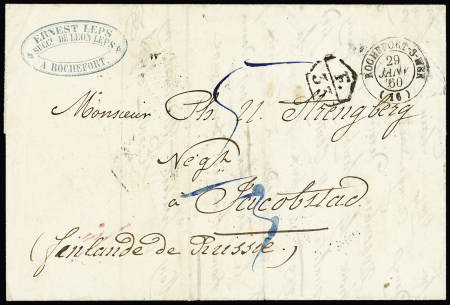 ERNEST LEPS
SUCC.R DE LEON LEPS
A ROCHEFORT.
ROCHEFORT-S-MER
29
JANV
60
(16)
F.
35
5
Monsieur Ph. U. Strengberg
Négt
à Jacobstad
3
(finlande de Russie.)